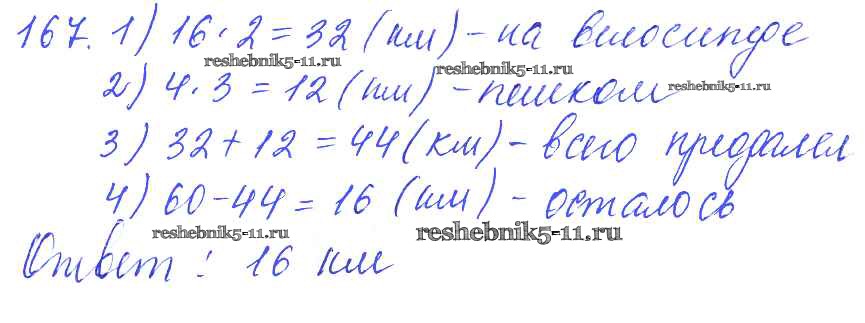 167. 1) 16 · 2 = 32 (км) – на велосипеде
reshebnik5-11.ru reshebnik5-11.ru
2) 4 · 3 = 12 (км) – пешком reshebnik5-11.ru
3) 32 + 12 = 44 (км) – всего преодолел
4) 60 – 44 = 16 (км) – осталось
reshebnik5-11.ru reshebnik5-11.ru
Ответ: 16 км